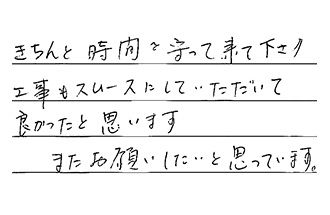 きちんと時間を守って来て下さり
工事もスムースにしていただいて
良かったと思います
またお願いしたいと思っています。